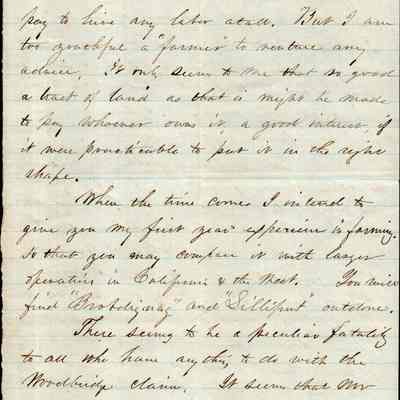 pay to hire any labor atall. But I am
too youthful a "farmer" to venture any
advice. It only seems to me that so good
a tract of land as that is might be made
to pay whoever owns it, a good interest, if
it were practicable to put it in the right
shape.
When the time comes I intend to
give you my first years experience in farming.
so that you may compare it with larger
operations in California & the West. You will
find "Brobdignag" and "Lilliput" outdone.
There seems to be a peculiar fatality
to all who have anything to do with the
Woodbridge claim. It seems that Mr